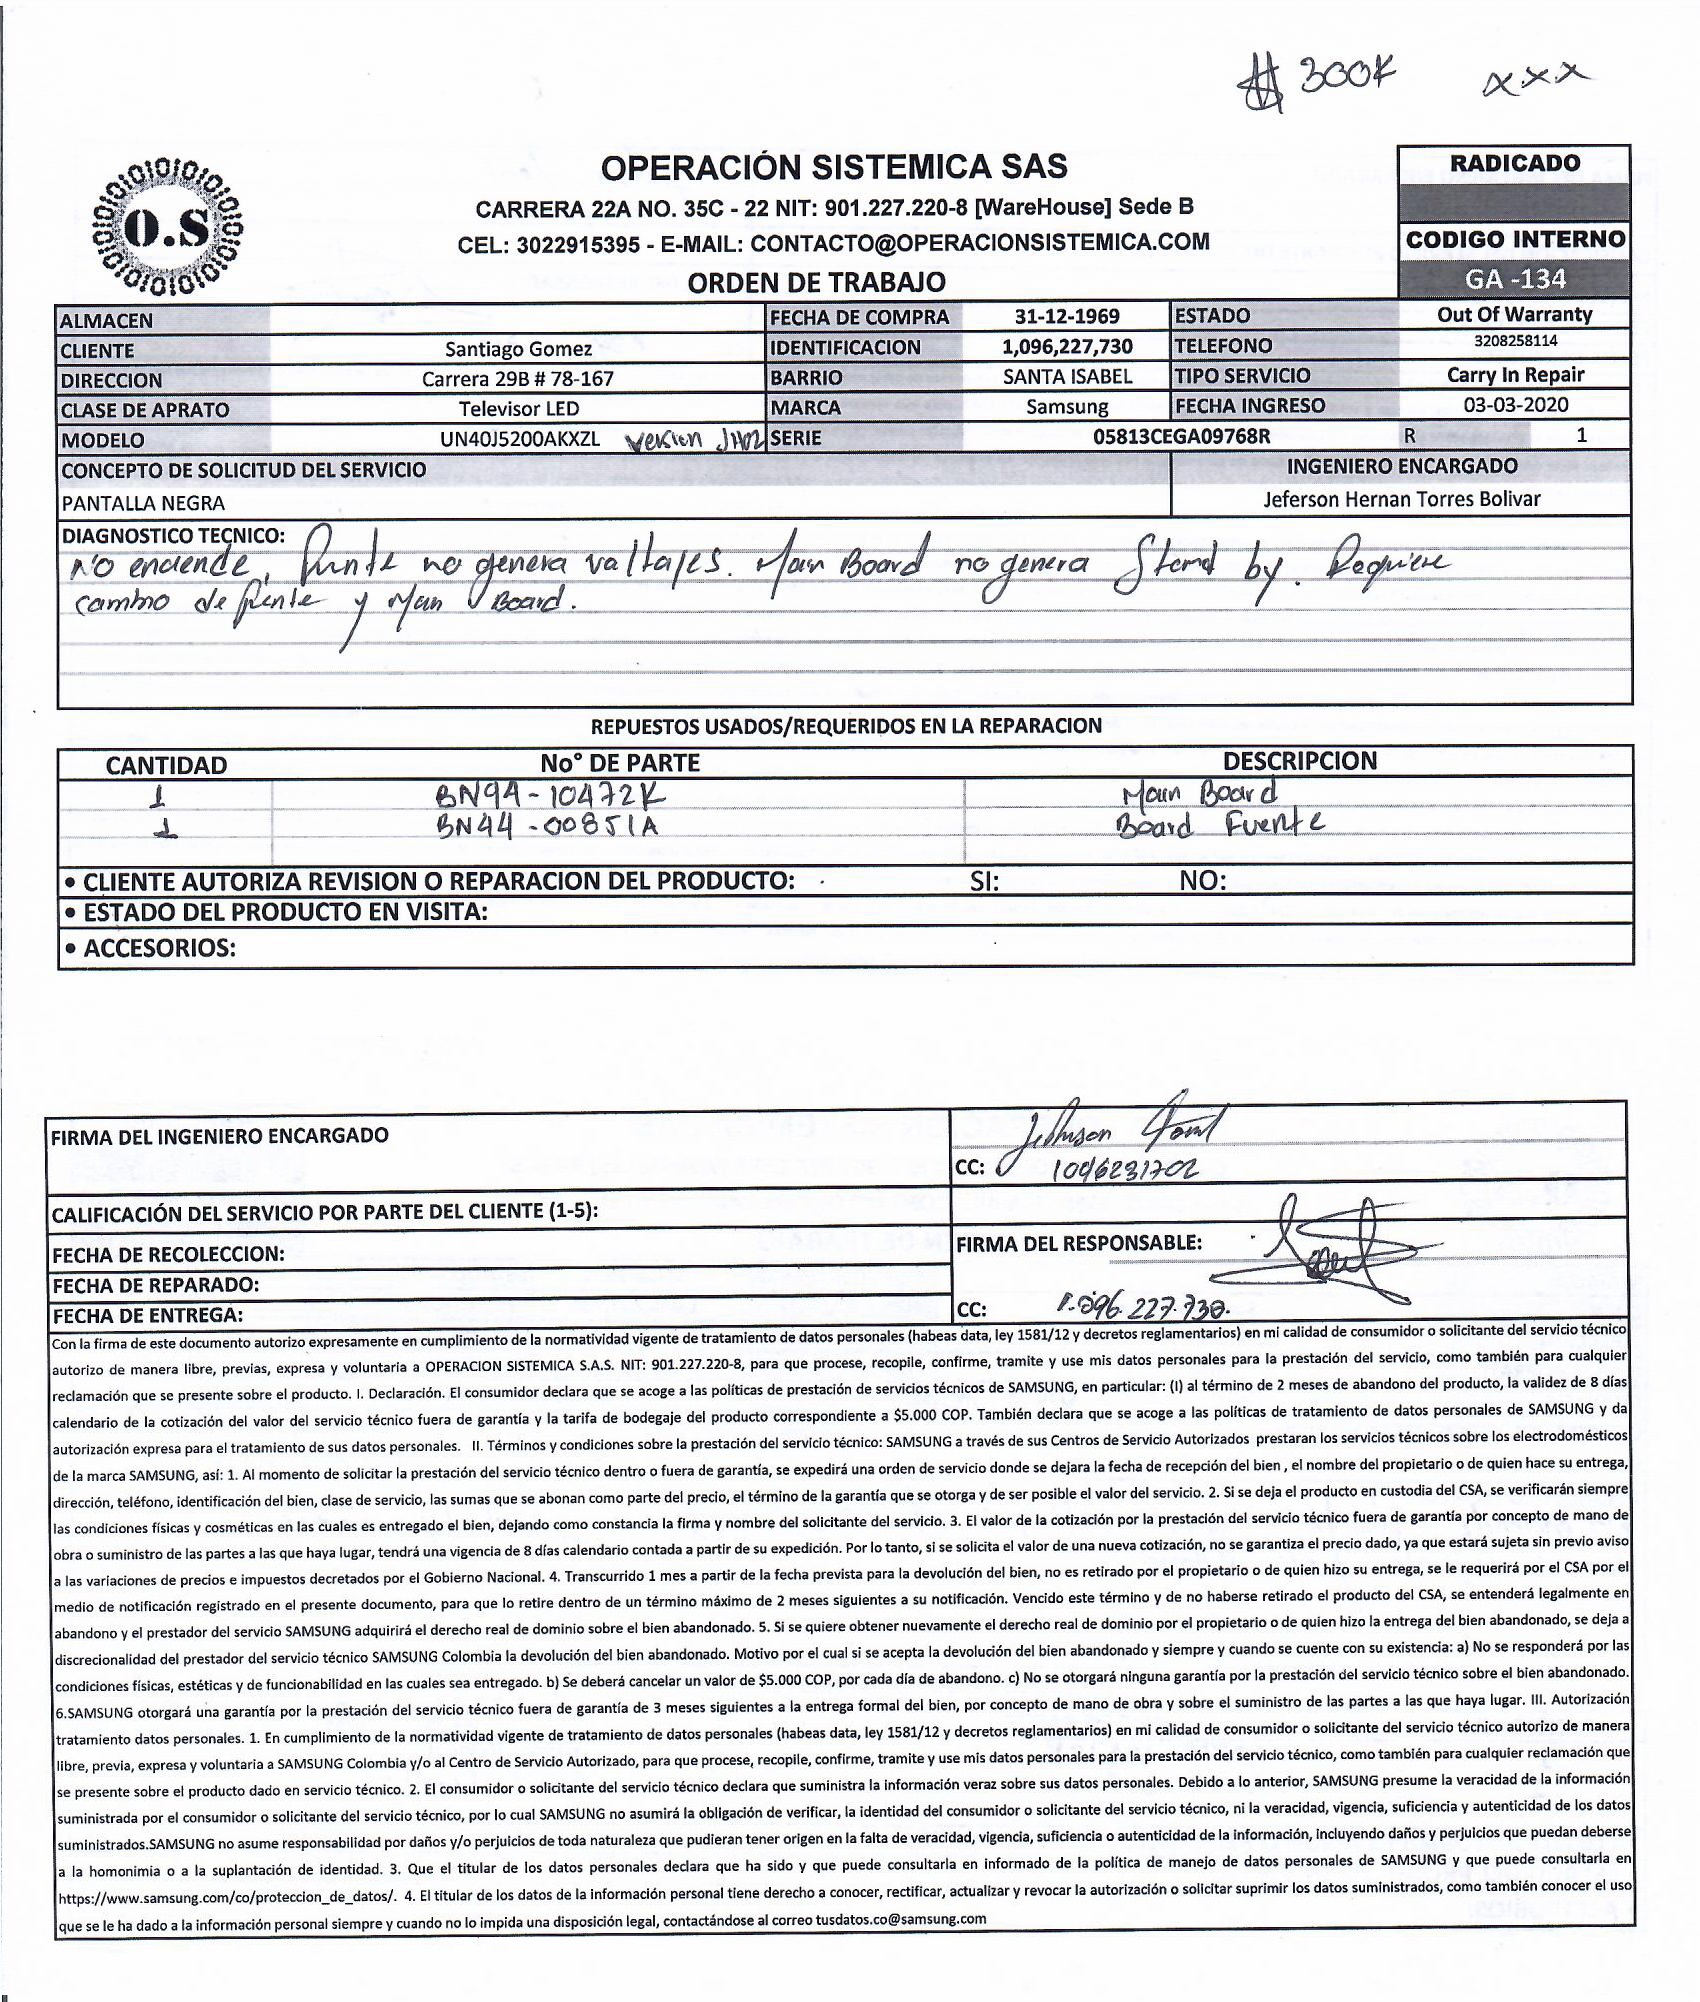 $ 300K xxx
O.S
OPERACIÓN SISTEMICA SAS
CARRERA 22A NO. 35C - 22 NIT: 901.227.220-8 [WareHouse] Sede B
CEL: 3022915395 - E-MAIL: CONTACTO@OPERACIONSISTEMICA.COM
ORDEN DE TRABAJO
RADICADO
CODIGO INTERNO
GA -134
ALMACEN FECHA DE COMPRA 31-12-1969 ESTADO Out Of Warranty
CLIENTE Santiago Gomez IDENTIFICACION 1,096,227,730 TELEFONO 3208258114
DIRECCION Carrera 29B # 78-167 BARRIO SANTA ISABEL TIPO SERVICIO Carry In Repair
CLASE DE APRATO Televisor LED MARCA Samsung FECHA INGRESO 03-03-2020
MODELO UN40J5200AKXZL Version JH02 SERIE 05813CEGA09768R R 1
CONCEPTO DE SOLICITUD DEL SERVICIO INGENIERO ENCARGADO
PANTALLA NEGRA Jeferson Hernan Torres Bolivar
DIAGNOSTICO TECNICO:
No enciende, Funte no genera valtajes. Main Board no genera Stand by. Requiere
cambio de funte y Main Board.
REPUESTOS USADOS/REQUERIDOS EN LA REPARACION
CANTIDAD No° DE PARTE DESCRIPCION
1 BN94-10472K Main Board
1 BN44-00851A Board Fuente
• CLIENTE AUTORIZA REVISION O REPARACION DEL PRODUCTO: SI: NO:
• ESTADO DEL PRODUCTO EN VISITA:
• ACCESORIOS:
FIRMA DEL INGENIERO ENCARGADO
CC: 1096231702
CALIFICACIÓN DEL SERVICIO POR PARTE DEL CLIENTE (1-5):
FECHA DE RECOLECCION: FIRMA DEL RESPONSABLE:
FECHA DE REPARADO:
FECHA DE ENTREGA: CC: 1.096.227.730.
Con la firma de este documento autorizo expresamente en cumplimiento de la normatividad vigente de tratamiento de datos personales (habeas data, ley 1581/12 y decretos reglamentarios) en mi calidad de consumidor o solicitante del servicio técnico
autorizo de manera libre, previas, expresa y voluntaria a OPERACION SISTEMICA S.A.S. NIT: 901.227.220-8, para que procese, recopile, confirme, tramite y use mis datos personales para la prestación del servicio, como también para cualquier
reclamación que se presente sobre el producto. I. Declaración. El consumidor declara que se acoge a las políticas de prestación de servicios técnicos de SAMSUNG, en particular: (I) al término de 2 meses de abandono del producto, la validez de 8 días
calendario de la cotización del valor del servicio técnico fuera de garantía y la tarifa de bodegaje del producto correspondiente a $5.000 COP. También declara que se acoge a las políticas de tratamiento de datos personales de SAMSUNG y da
autorización expresa para el tratamiento de sus datos personales. II. Términos y condiciones sobre la prestación del servicio técnico: SAMSUNG a través de sus Centros de Servicio Autorizados prestaran los servicios técnicos sobre los electrodomésticos
de la marca SAMSUNG, así: 1. Al momento de solicitar la prestación del servicio técnico dentro o fuera de garantía, se expedirá una orden de servicio donde se dejara la fecha de recepción del bien , el nombre del propietario o de quien hace su entrega,
dirección, teléfono, identificación del bien, clase de servicio, las sumas que se abonan como parte del precio, el término de la garantía que se otorga y de ser posible el valor del servicio. 2. Si se deja el producto en custodia del CSA, se verificarán siempre
las condiciones físicas y cosméticas en las cuales es entregado el bien, dejando como constancia la firma y nombre del solicitante del servicio. 3. El valor de la cotización por la prestación del servicio técnico fuera de garantía por concepto de mano de
obra o suministro de las partes a las que haya lugar, tendrá una vigencia de 8 días calendario contada a partir de su expedición. Por lo tanto, si se solicita el valor de una nueva cotización, no se garantiza el precio dado, ya que estará sujeta sin previo aviso
a las variaciones de precios e impuestos decretados por el Gobierno Nacional. 4. Transcurrido 1 mes a partir de la fecha prevista para la devolución del bien, no es retirado por el propietario o de quien hizo su entrega, se le requerirá por el CSA por el
medio de notificación registrado en el presente documento, para que lo retire dentro de un término máximo de 2 meses siguientes a su notificación. Vencido este término y de no haberse retirado el producto del CSA, se entenderá legalmente en
abandono y el prestador del servicio SAMSUNG adquirirá el derecho real de dominio sobre el bien abandonado. 5. Si se quiere obtener nuevamente el derecho real de dominio por el propietario o de quien hizo la entrega del bien abandonado, se deja a
discrecionalidad del prestador del servicio técnico SAMSUNG Colombia la devolución del bien abandonado. Motivo por el cual si se acepta la devolución del bien abandonado y siempre y cuando se cuente con su existencia: a) No se responderá por las
condiciones físicas, estéticas y de funcionabilidad en las cuales sea entregado. b) Se deberá cancelar un valor de $5.000 COP, por cada día de abandono. c) No se otorgará ninguna garantía por la prestación del servicio técnico sobre el bien abandonado.
6.SAMSUNG otorgará una garantía por la prestación del servicio técnico fuera de garantía de 3 meses siguientes a la entrega formal del bien, por concepto de mano de obra y sobre el suministro de las partes a las que haya lugar. III. Autorización
tratamiento datos personales. 1. En cumplimiento de la normatividad vigente de tratamiento de datos personales (habeas data, ley 1581/12 y decretos reglamentarios) en mi calidad de consumidor o solicitante del servicio técnico autorizo de manera
libre, previa, expresa y voluntaria a SAMSUNG Colombia y/o al Centro de Servicio Autorizado, para que procese, recopile, confirme, tramite y use mis datos personales para la prestación del servicio técnico, como también para cualquier reclamación que
se presente sobre el producto dado en servicio técnico. 2. El consumidor o solicitante del servicio técnico declara que suministra la información veraz sobre sus datos personales. Debido a lo anterior, SAMSUNG presume la veracidad de la información
suministrada por el consumidor o solicitante del servicio técnico, por lo cual SAMSUNG no asumirá la obligación de verificar, la identidad del consumidor o solicitante del servicio técnico, ni la veracidad, vigencia, suficiencia y autenticidad de los datos
suministrados.SAMSUNG no asume responsabilidad por daños y/o perjuicios de toda naturaleza que pudieran tener origen en la falta de veracidad, vigencia, suficiencia o autenticidad de la información, incluyendo daños y perjuicios que puedan deberse
a la homonimia o a la suplantación de identidad. 3. Que el titular de los datos personales declara que ha sido y que puede consultarla en informado de la política de manejo de datos personales de SAMSUNG y que puede consultarla en
https://www.samsung.com/co/proteccion_de_datos/. 4. El titular de los datos de la información personal tiene derecho a conocer, rectificar, actualizar y revocar la autorización o solicitar suprimir los datos suministrados, como también conocer el uso
que se le ha dado a la información personal siempre y cuando no lo impida una disposición legal, contactándose al correo tusdatos.co@samsung.com